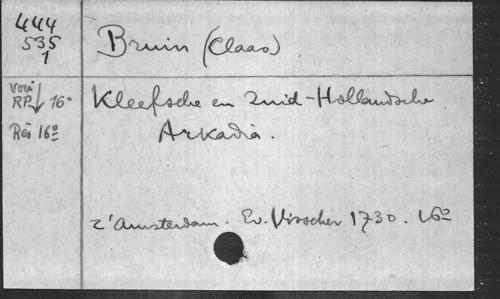 444
535
1
Bruin (Claas)
voir
RP↓ 16°
Rés 16º
Kleefsche en Zuid-Hollandsche
Arkadia.
t'Amsterdam. Ev. Visscher 1730. 16º